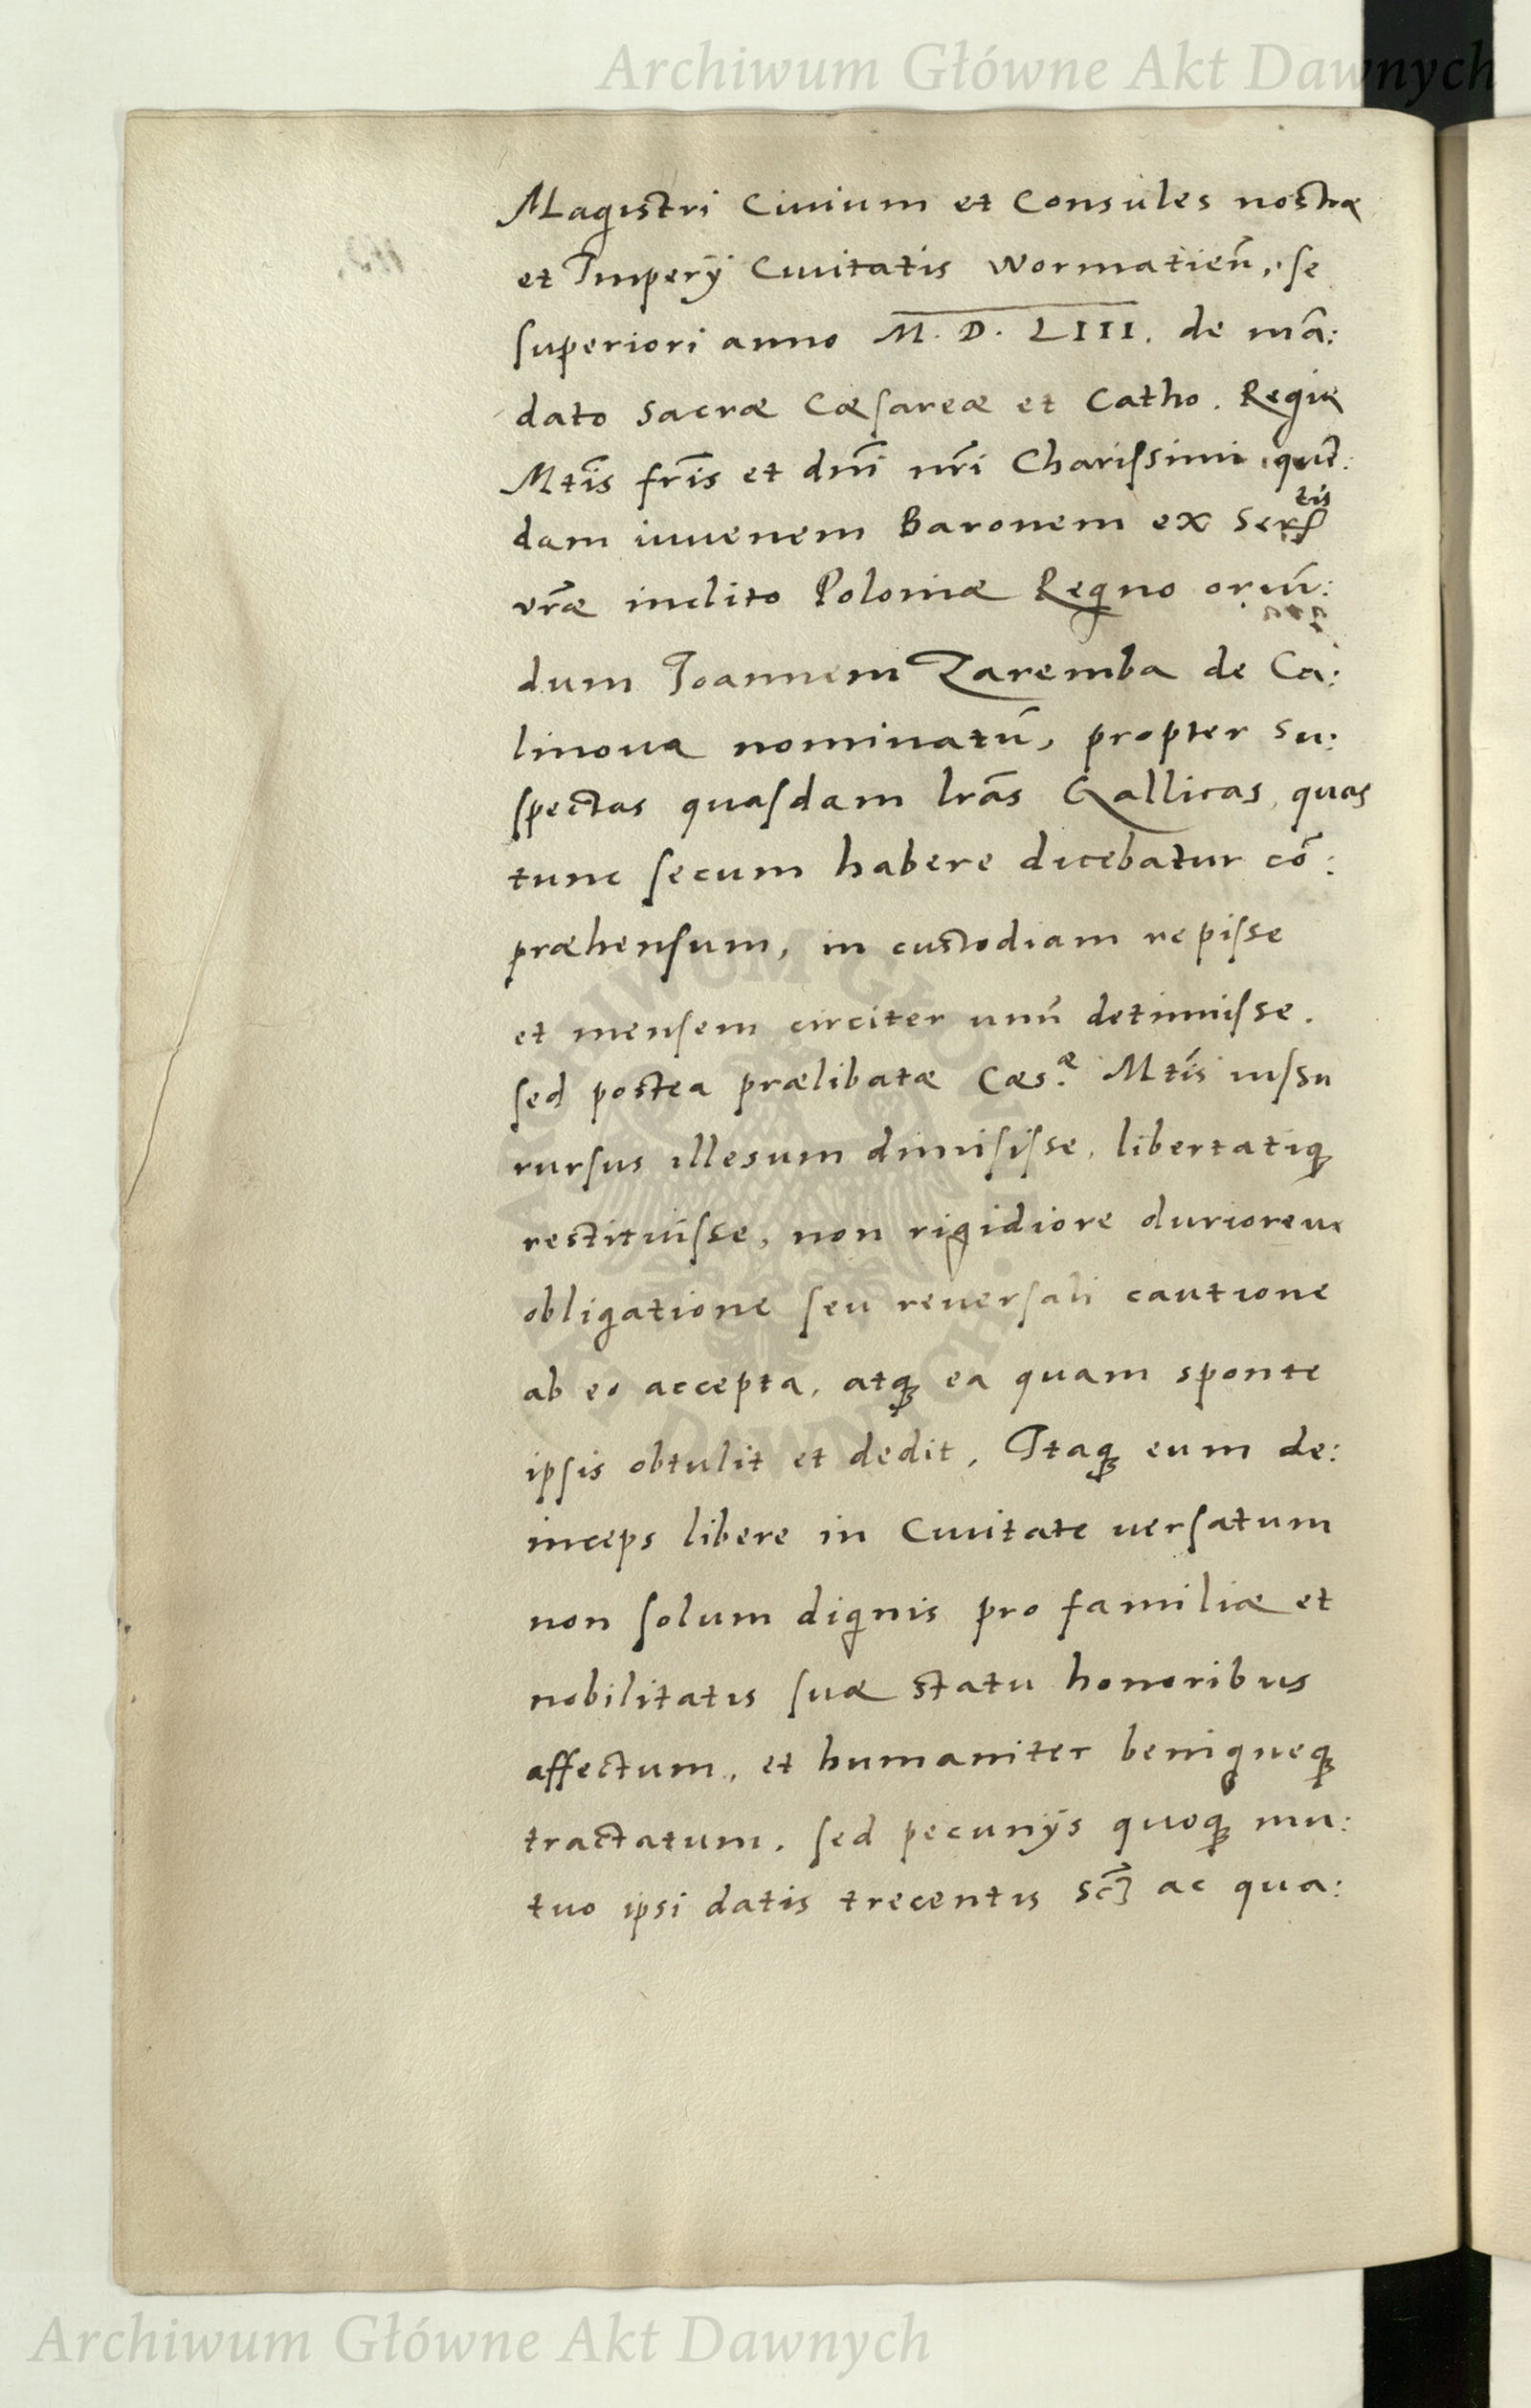 Archiwum Główne Akt Dawnych
Magistri Ciuium et Consules nostræ
et Imperÿ Ciuitatis wormatien̄, se
superiori anno M. D. LIII. de mā:
dato Sacræ Cæsareæ et Catho. Regiæ
Mt̄is fr̄is et dn̄i nr̄i Charissimi quē:
dam iuuenem Baronem ex Ser^tis
vr̄æ inclito Poloniæ Regno oriū:
dum Ioannem Zaremba de Ca:
linoua nominatū, propter su:
spectas quasdam lr̄as Gallicas, quas
tunc secum habere dicebatur cō:
præhensum, in custodiam repisse
et mensem circiter unū detinuisse.
sed postea prælibatæ Cæs.^æ Mt̄is iussu
rursus illesum dimisisse, libertatiqꝫ
restituisse, non rigidiore durioreue
obligatione seu reuersali cautione
ab eo accepta, atqꝫ ea quam sponte
ipsis obtulit et dedit, Itaqꝫ eum de:
inceps libere in Ciuitate uersatum
non solum dignis pro familiæ et
nobilitatis suæ statu honoribus
affectum, et humaniter benigneqꝫ
tractatum. sed pecunÿs quoqꝫ mu:
tuo ipsi datis trecentis ac qua:
Archiwum Główne Akt Dawnych